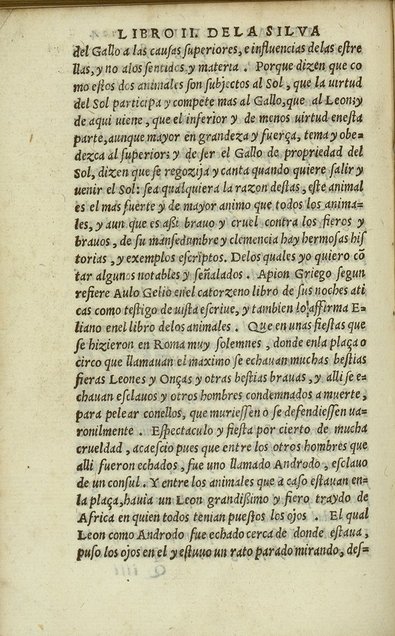 LIBRO II. DELA SILVA
del Gallo a las causas superiores, e influencias delas estre
llas, y no alos sentidos y materia . Porque dizen que co
mo estos dos animales son subjectos al Sol , que la uirtud
del Sol participa y compete mas al Gallo, que al Leon: y
de aqui viene , que el inferior y de menos uirtud enesta
parte, aunque mayor en grandeza y fuerça, tema y obe=
dezca al superior: y de ser el Gallo de propriedad del
Sol, dizen que se regozija y canta quando quiere salir y
uenir el Sol: sea qualquiera la razon destas, este animal
es el mas fuerte y de mayor animo que todos los anima=
les, y aun que es aßi brauo y cruel contra los fieros y
brauos, de su mansedumbre y clemencia hay hermosas his
torias , y exemplos escriptos. Delos quales yo quiero cō
tar algunos notables y señalados . Apion Griego segun
refiere Aulo Gelio enel catorzeno libro de sus noches ati
cas como testigo de uista escriue, y tambien lo affirma E=
liano enel libro delos animales . Que en unas fiestas que
se hizieron en Roma muy solemnes , donde enla plaça o
circo que llamauan el maximo se echauan muchas bestias
fieras Leones y Onças y otras bestias brauas , y alli se e=
chauan esclauos y otros hombres condemnados a muerte,
para pelear conellos, que muriessen o se defendiessen ua=
ronilmente . Espectaculo y fiesta por cierto de mucha
crueldad , acaescio pues que entre los otros hombres que
alli fueron echados, fue uno llamado Androdo , esclauo
de un consul. Y entre los animales que a caso estauan en=
la plaça, hauia un Leon grandißimo y fiero traydo de
Africa en quien todos tenian puestos los ojos . El qual
Leon como Androdo fue echado cerca de donde estaua,
puso los ojos en el y estuuo un rato parado mirando, des=